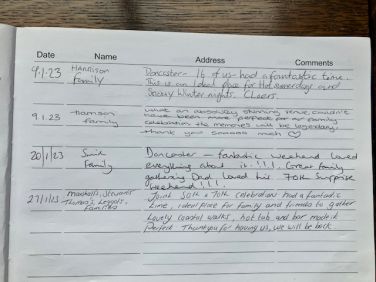 Date Name Address Comments
9.1.23 HARRISON Family Doncaster - 16 of us had a fantastic time.
This is an ideal place for Hot summer days and
Snowy Winter nights. Cheers.
9.1.23 Family what an absolutely stunning venue, couldn't
have been more perfect for our family
celebration. The memories will be legendary.
Thank you Soooooo much ♡
20/1/23 Family Doncaster - fantastic weekend loved
everything about it!!!! Great family
gathering Dad loved his 70th Surprise
weekend!!!
27/1/23 Marshalls, Stewart Joint 50th & 70th Celebration had a fantastic
Thomas's, Families time, ideal place for family and friends to gather
Lovely coastal walks, hot tub and bar made it
Perfect. Thankyou for having us, we will be back